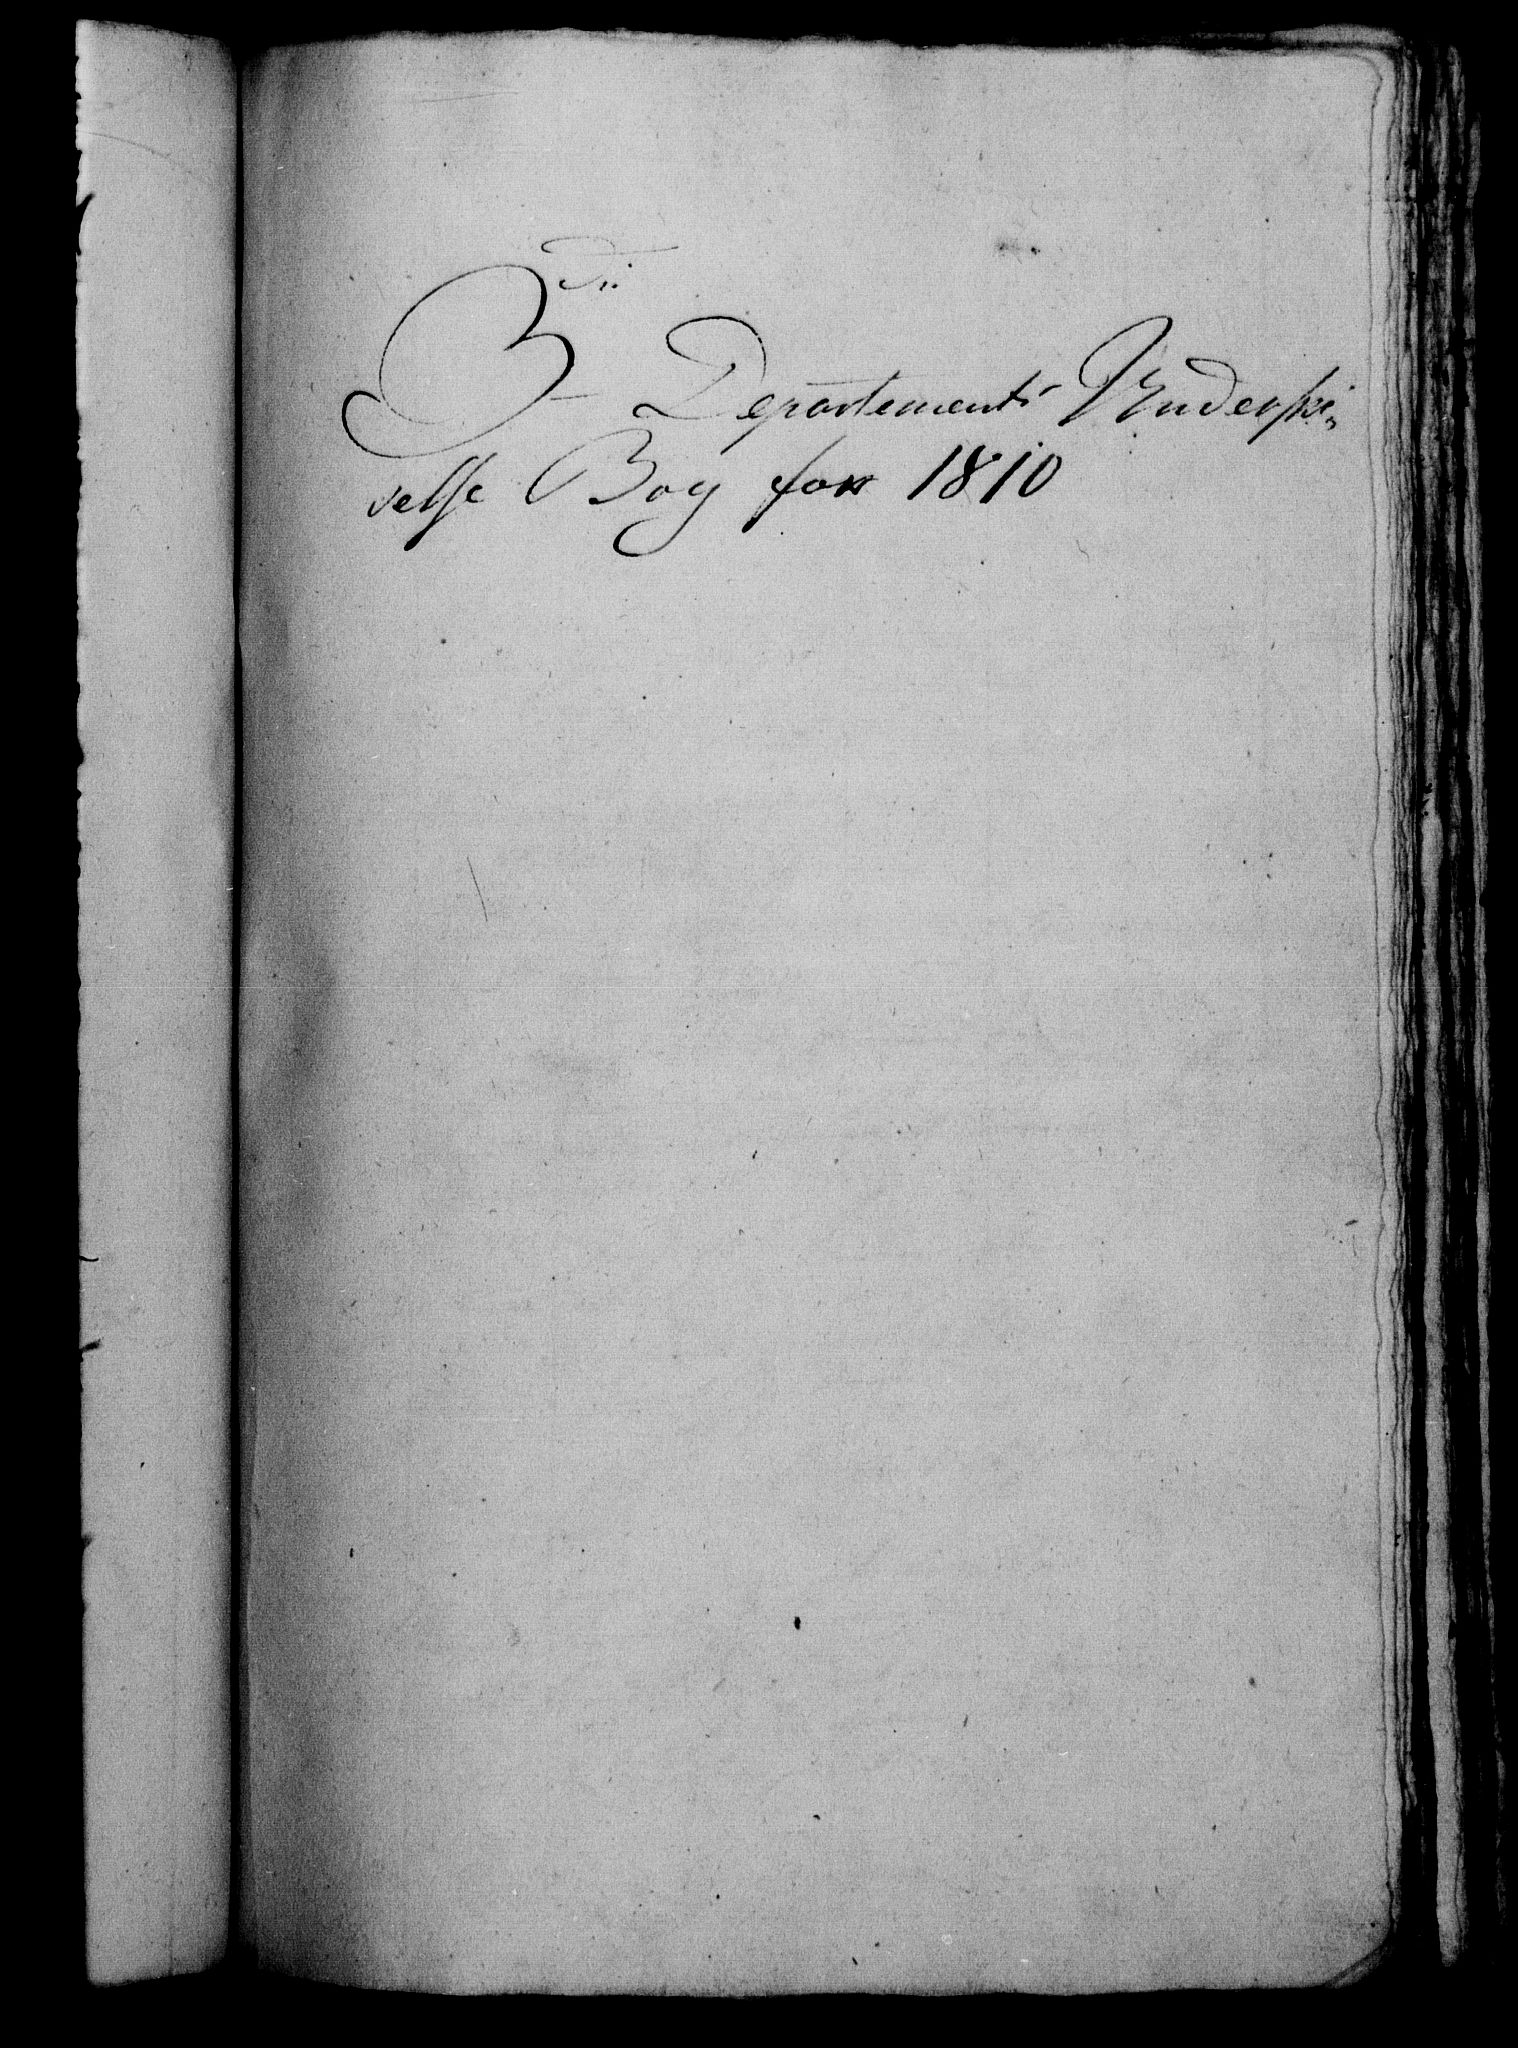 3die Departements Underskri-
velse Bog for 1810